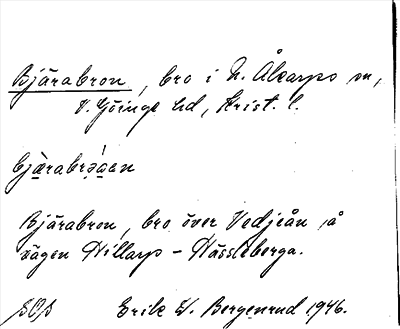 Bjärabron, bro i N. Åkarps sn,
V. Göinge hd, Krist. l.
Bjärabron, bro över Vedjeån å
vägen Hillarp – Hässleberga.
Erik W. Bergenrud 1946.